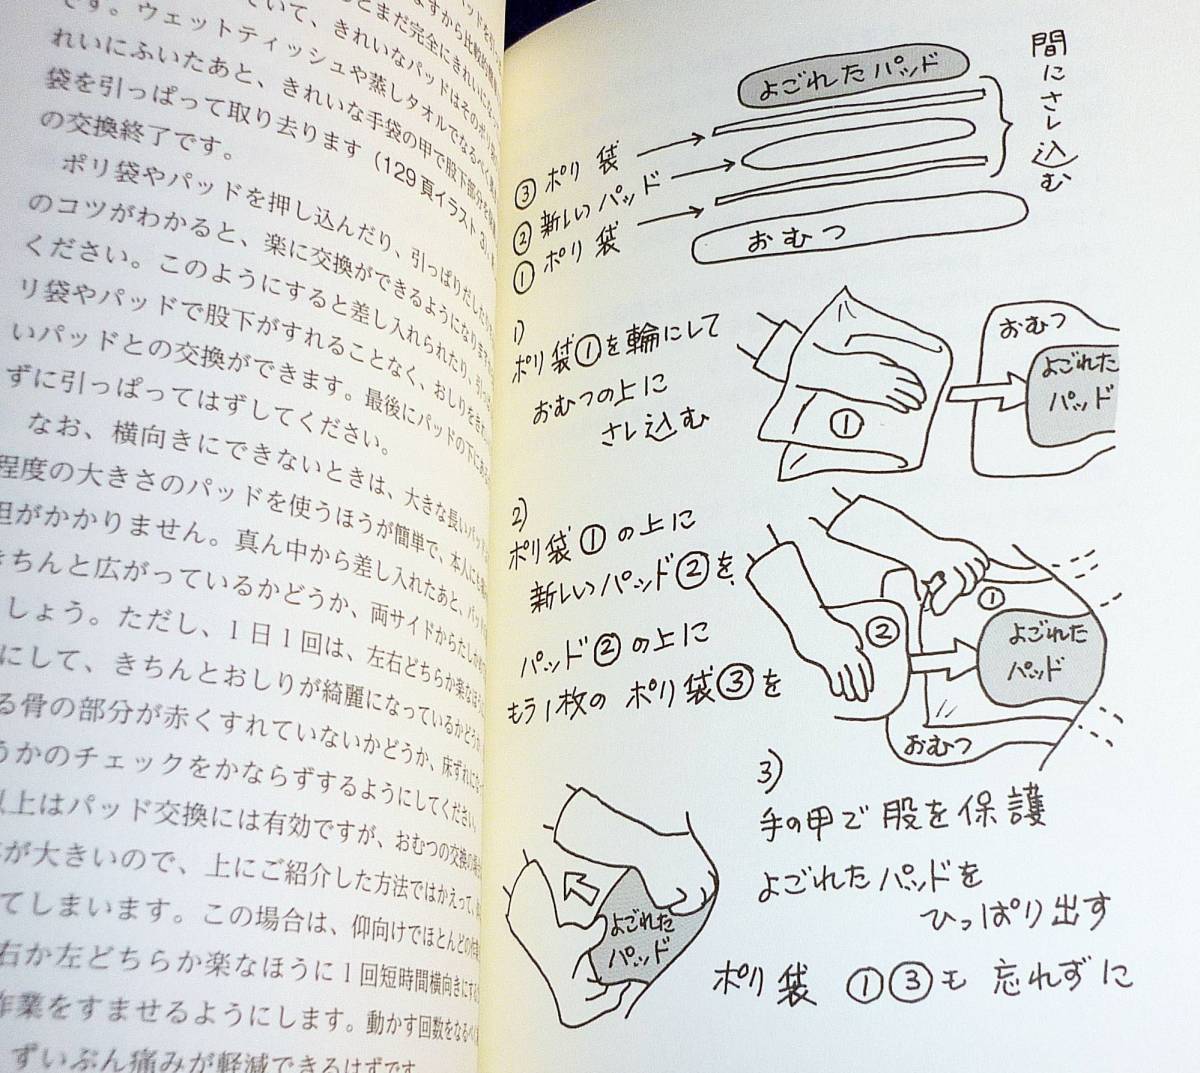 です。ウェットティッシュや蒸しタオルでなるべく
れいにふいたあと、きれいな手袋の甲で股下部分を
袋を引っぱって取り去ります(129頁イラスト3)
の交換終了です。
ポリ袋やパッドを押し込んだり、引っぱりだしたり
のコツがわかると、楽に交換ができるようになります
ください。このようにすると差し入れられたり、引っ
リ袋やパッドで股下がすれることなく、おしりをきれ
いパッドとの交換ができます。最後にパッドの下にある
ずに引っぱってはずしてください。
なお、横向きにできないときは、大きな長いパッド
程度の大きさのパッドを使うほうが簡単で、本人にも
担がかかりません。真ん中から差し入れたあと、パッド
きちんと広がっているかどうか、両サイドからたしかめ
しょう。ただし、1日1回は、左右どちらか楽なほう
にして、きちんとおしりが綺麗になっているかどうか、
る骨の部分が赤くすれていないかどうか、床ずれに
うかのチェックをかならずするようにしてください。
以上はパッド交換には有効ですが、おむつの交換の
が大きいので、上にご紹介した方法ではかえって、
てしまいます。この場合は、仰向けでほとんどの
右か左どちらか楽なほうに1回短時間横向きに
作業をすませるようにします。動かす回数をなるべく
ずいぶん痛みが軽減できるはずです。
よごれたパッド
間にさし込む
③ポリ袋
②新しいパッド
①ポリ袋
おむつ
1)
ポリ袋①を輪にして
おむつの上に
さし込む
①
おむつ
よごれた
パッド
2)
ポリ袋①の上に
新しいパッド②を、
パッド②の上に
もう1枚のポリ袋③を
①
②
よごれた
パッド
おむつ
3)
手の甲で股を保護
よごれたパッドを
ひっぱり出す
よごれた
パッド
ポリ袋①③も忘れずに